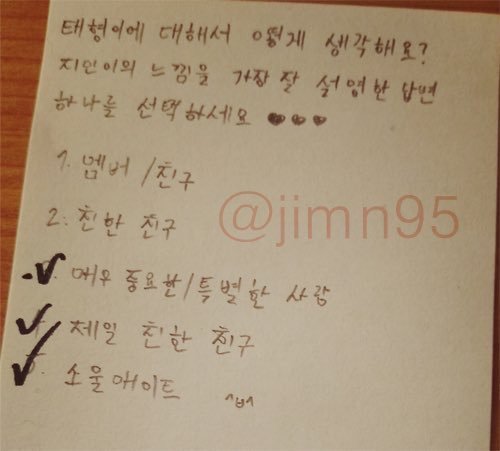 태형이에 대해서 어떻게 생각해요?
지민이의 느낌을 가장 잘 설명한 답변
하나를 선택하세요 ♥♥♥
1. 멤버 / 친구
2. 친한 친구
@jimn95
매우 중요한/특별한 사람
제일 친한 친구
소울메이트 ^ㅂ^